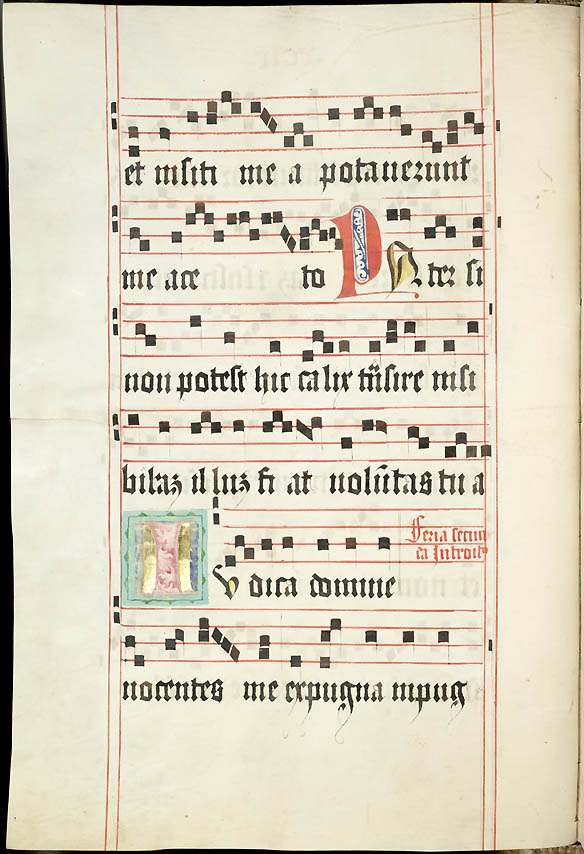 et in siti me a potaverunt
me ace to Pa ter si
non potest hic ca lix trãsire nisi
bibaz il luz fi at volũtas tu a
Feria secun
da Introitꝰ
Iu dica domine
nocentes me expugna inpug